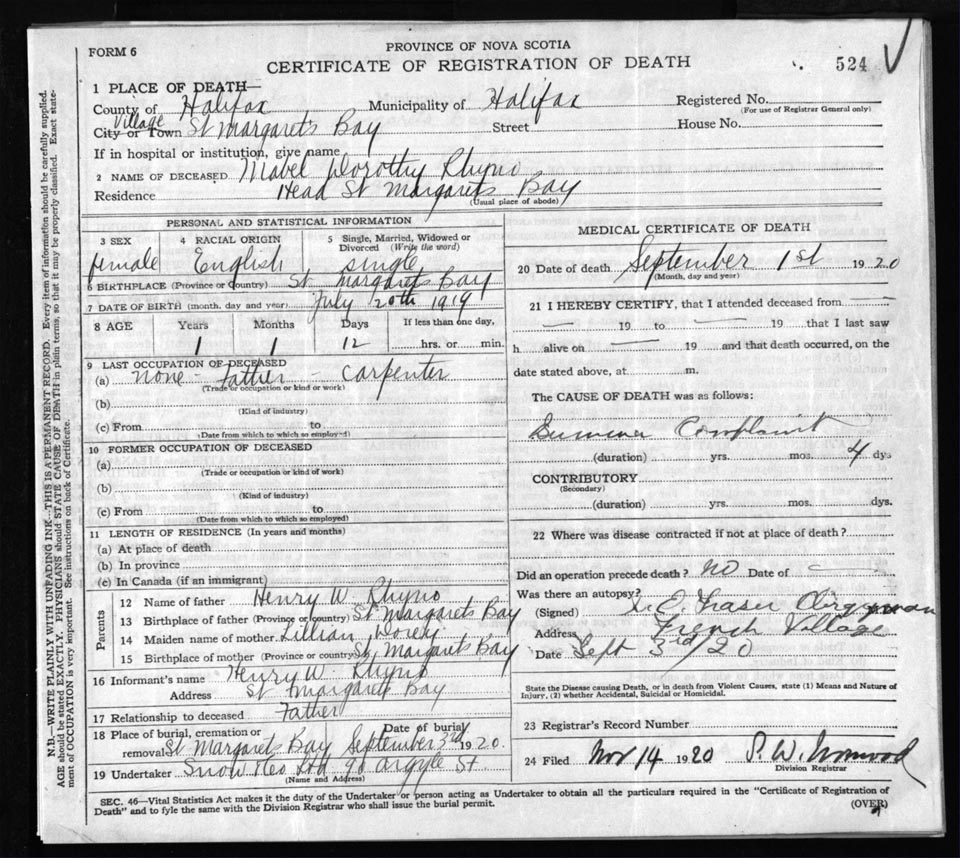 FORM 6
PROVINCE OF NOVA SCOTIA
CERTIFICATE OF REGISTRATION OF DEATH
524
1 PLACE OF DEATH—
County of Halifax Municipality of Halifax Registered No.
(For use of Registrar General only)
Village
City or Town St Margaret's Bay Street House No.
If in hospital or institution, give name
2 NAME OF DECEASED Mabel Dorothy Rhyno
Residence Head St Margarets Bay
(Usual place of abode)
PERSONAL AND STATISTICAL INFORMATION
3 SEX 4 RACIAL ORIGIN 5 Single, Married, Widowed or Divorced (Write the word)
female English single
6 BIRTHPLACE (Province or Country) St Margarets Bay
7 DATE OF BIRTH (month, day and year) July 20th 1919
8 AGE Years Months Days If less than one day,
1 1 12 hrs. or min.
9 LAST OCCUPATION OF DECEASED
(a) none - Father - carpenter
(Trade or occupation or kind or work)
(b)
(Kind of industry)
(c) From to
(Date from which to which so employed)
10 FORMER OCCUPATION OF DECEASED
(a)
(Trade or occupation or kind of work)
(b)
(Kind of industry)
(c) From to
(Date from which to which so employed)
11 LENGTH OF RESIDENCE (In years and months)
(a) At place of death
(b) In province
(c) In Canada (if an immigrant)
Parents
12 Name of father Henry W. Rhyno
13 Birthplace of father (Province or country) St Margarets Bay
14 Maiden name of mother Lillian Dorey
15 Birthplace of mother (Province or country) St Margarets Bay
16 Informant's name Henry W. Rhyno
Address St Margarets Bay
17 Relationship to deceased Father
18 Place of burial, cremation or removal St Margarets Bay Date of burial September 3rd 1920.
19 Undertaker Snow &Co Ltd 90 Argyle St.
(Name and Address)
MEDICAL CERTIFICATE OF DEATH
20 Date of death September 1st 1920
(Month, day and year)
21 I HEREBY CERTIFY, that I attended deceased from
19 to 19 that I last saw
h alive on 19 and that death occurred, on the
date stated above, at m.
The CAUSE OF DEATH was as follows:
Summer Complaint
(duration) yrs. mos. 4 dys
CONTRIBUTORY
(Secondary)
(duration) yrs. mos. dys.
22 Where was disease contracted if not at place of death?
Did an operation precede death? No Date of
Was there an autopsy?
(Signed) Fraser Clergyman
Address French Village
Date Sept 3rd/20
State the Disease causing Death, or in death from Violent Causes, state (1) Means and Nature of
Injury, (2) whether Accidental, Suicidal or Homicidal.
23 Registrar's Record Number
24 Filed Nov 14 1920 S. W.
Division Registrar
SEC. 46—Vital Statistics Act makes it the duty of the Undertaker or person acting as Undertaker to obtain all the particulars required in the "Certificate of Registration of
Death" and to fyle the same with the Division Registrar who shall issue the burial permit. (OVER)
N.B.—WRITE PLAINLY WITH UNFADING INK—THIS IS A PERMANENT RECORD. Every item of information should be carefully supplied.
AGE should be stated EXACTLY. PHYSICIANS should STATE CAUSE OF DEATH in plain terms, so that it may be properly classified. Exact state-
ment of OCCUPATION is very important. See instructions on back of Certificate.